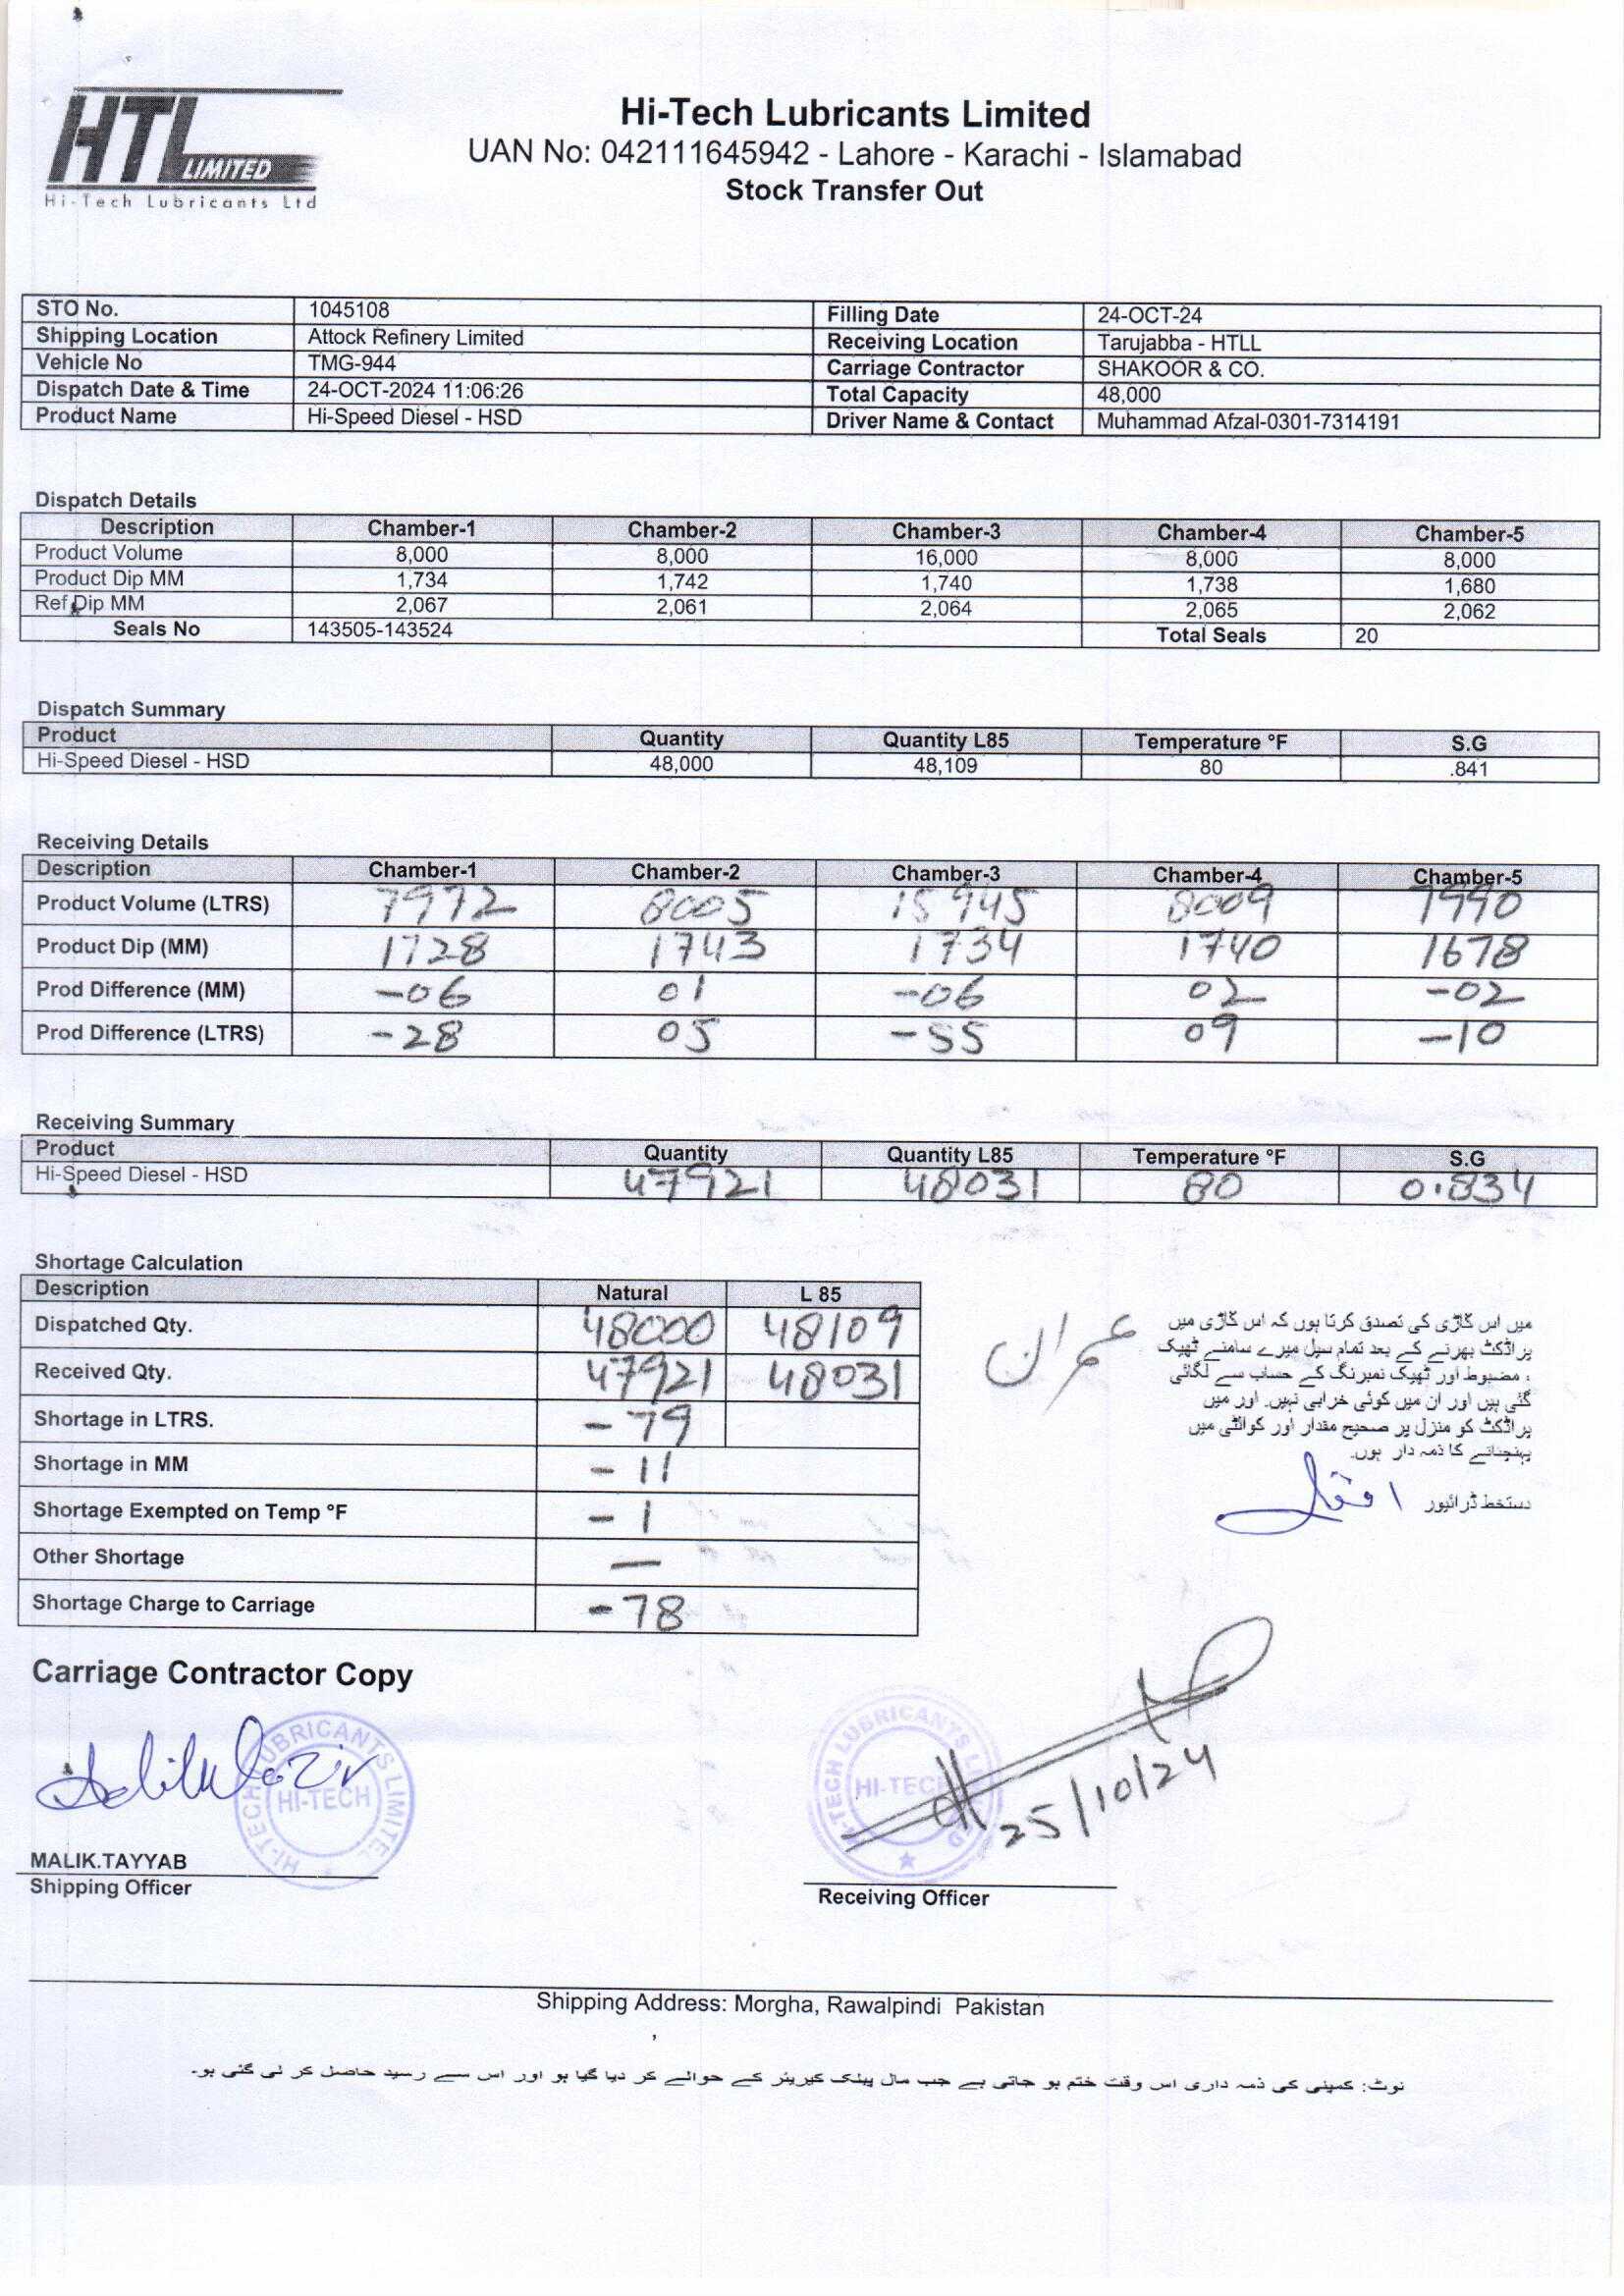 HTL LIMITED
Hi-Tech Lubricants Ltd
Hi-Tech Lubricants Limited
UAN No: 042111645942 - Lahore - Karachi - Islamabad
Stock Transfer Out
STO No. 1045108 Filling Date 24-OCT-24
Shipping Location Attock Refinery Limited Receiving Location Tarujabba - HTLL
Vehicle No TMG-944 Carriage Contractor SHAKOOR & CO.
Dispatch Date & Time 24-OCT-2024 11:06:26 Total Capacity 48,000
Product Name Hi-Speed Diesel - HSD Driver Name & Contact Muhammad Afzal-0301-7314191
Dispatch Details
Description Chamber-1 Chamber-2 Chamber-3 Chamber-4 Chamber-5
Product Volume 8,000 8,000 16,000 8,000 8,000
Product Dip MM 1,734 1,742 1,740 1,738 1,680
Ref Dip MM 2,067 2,061 2,064 2,065 2,062
Seals No 143505-143524 Total Seals 20
Dispatch Summary
Product Quantity Quantity L85 Temperature °F S.G
Hi-Speed Diesel - HSD 48,000 48,109 80 .841
Receiving Details
Description Chamber-1 Chamber-2 Chamber-3 Chamber-4 Chamber-5
Product Volume (LTRS) 7972 8005 15945 8009 7990
Product Dip (MM) 1728 1743 1734 1740 1678
Prod Difference (MM) -06 01 -06 02 -02
Prod Difference (LTRS) -28 05 -55 09 -10
Receiving Summary
Product Quantity Quantity L85 Temperature °F S.G
Hi-Speed Diesel - HSD 47921 48031 80 0.834
Shortage Calculation
Description Natural L 85
Dispatched Qty. 48000 48109
Received Qty. 47921 48031
Shortage in LTRS. -79
Shortage in MM -11
Shortage Exempted on Temp °F -1
Other Shortage —
Shortage Charge to Carriage -78
عمران
میں اس گاڑی کی تصدق کرتا ہوں کہ اس گاڑی میں
پراڈکٹ بھرنے کے بعد تمام سیل میرے سامنے ٹھیک
، مضبوط اور ٹھیک نمبرنگ کے حساب سے لگائی
گئی ہیں اور ان میں کوئی خرابی نہیں۔ اور میں
پراڈکٹ کو منزل پر صحیح مقدار اور کوالٹی میں
پہنچانے کا ذمہ دار ہوں۔
دستخط ڈرائیور
Carriage Contractor Copy
HI-TECH LUBRICANTS LIMITED
HI-TECH
HI-TECH LUBRICANTS LIMITED
HI-TECH
25/10/24
MALIK.TAYYAB
Shipping Officer
Receiving Officer
Shipping Address: Morgha, Rawalpindi Pakistan
نوٹ: کمپنی کی ذمہ داری اس وقت ختم ہو جاتی ہے جب مال بینک کیریئر کے حوالے کر دیا گیا ہو اور اس سے رسید حاصل کر لی گئی ہو۔